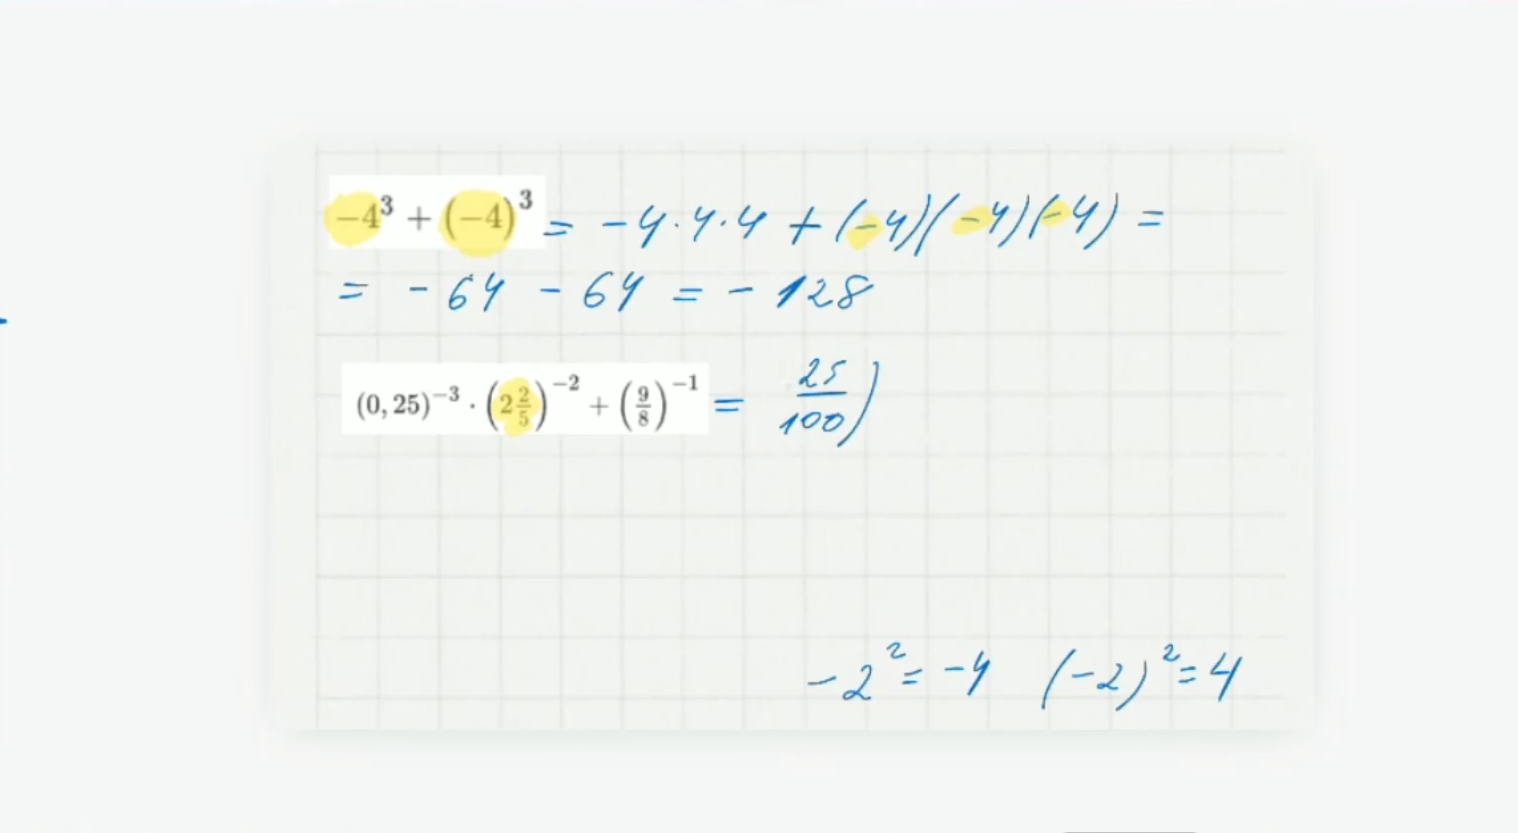 −4³ + (−4)³ = −4·4·4 + (−4)(−4)(−4) =
= −64 − 64 = −128
(0,25)⁻³ · (2 2/5)⁻² + (9/8)⁻¹ = 25/100)
−2² = −4 (−2)² = 4